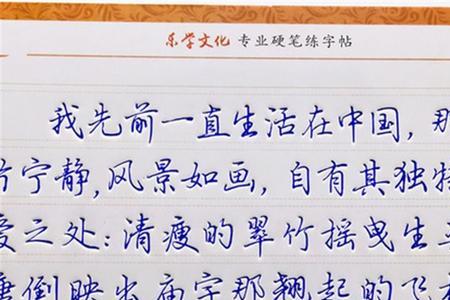 乐学文化 专业硬笔练字帖
我先前一直生活在中国，那
宁静，风景如画，自有其独特
之处：清瘦的翠竹摇曳生
倒映出庙宇那翘起的飞